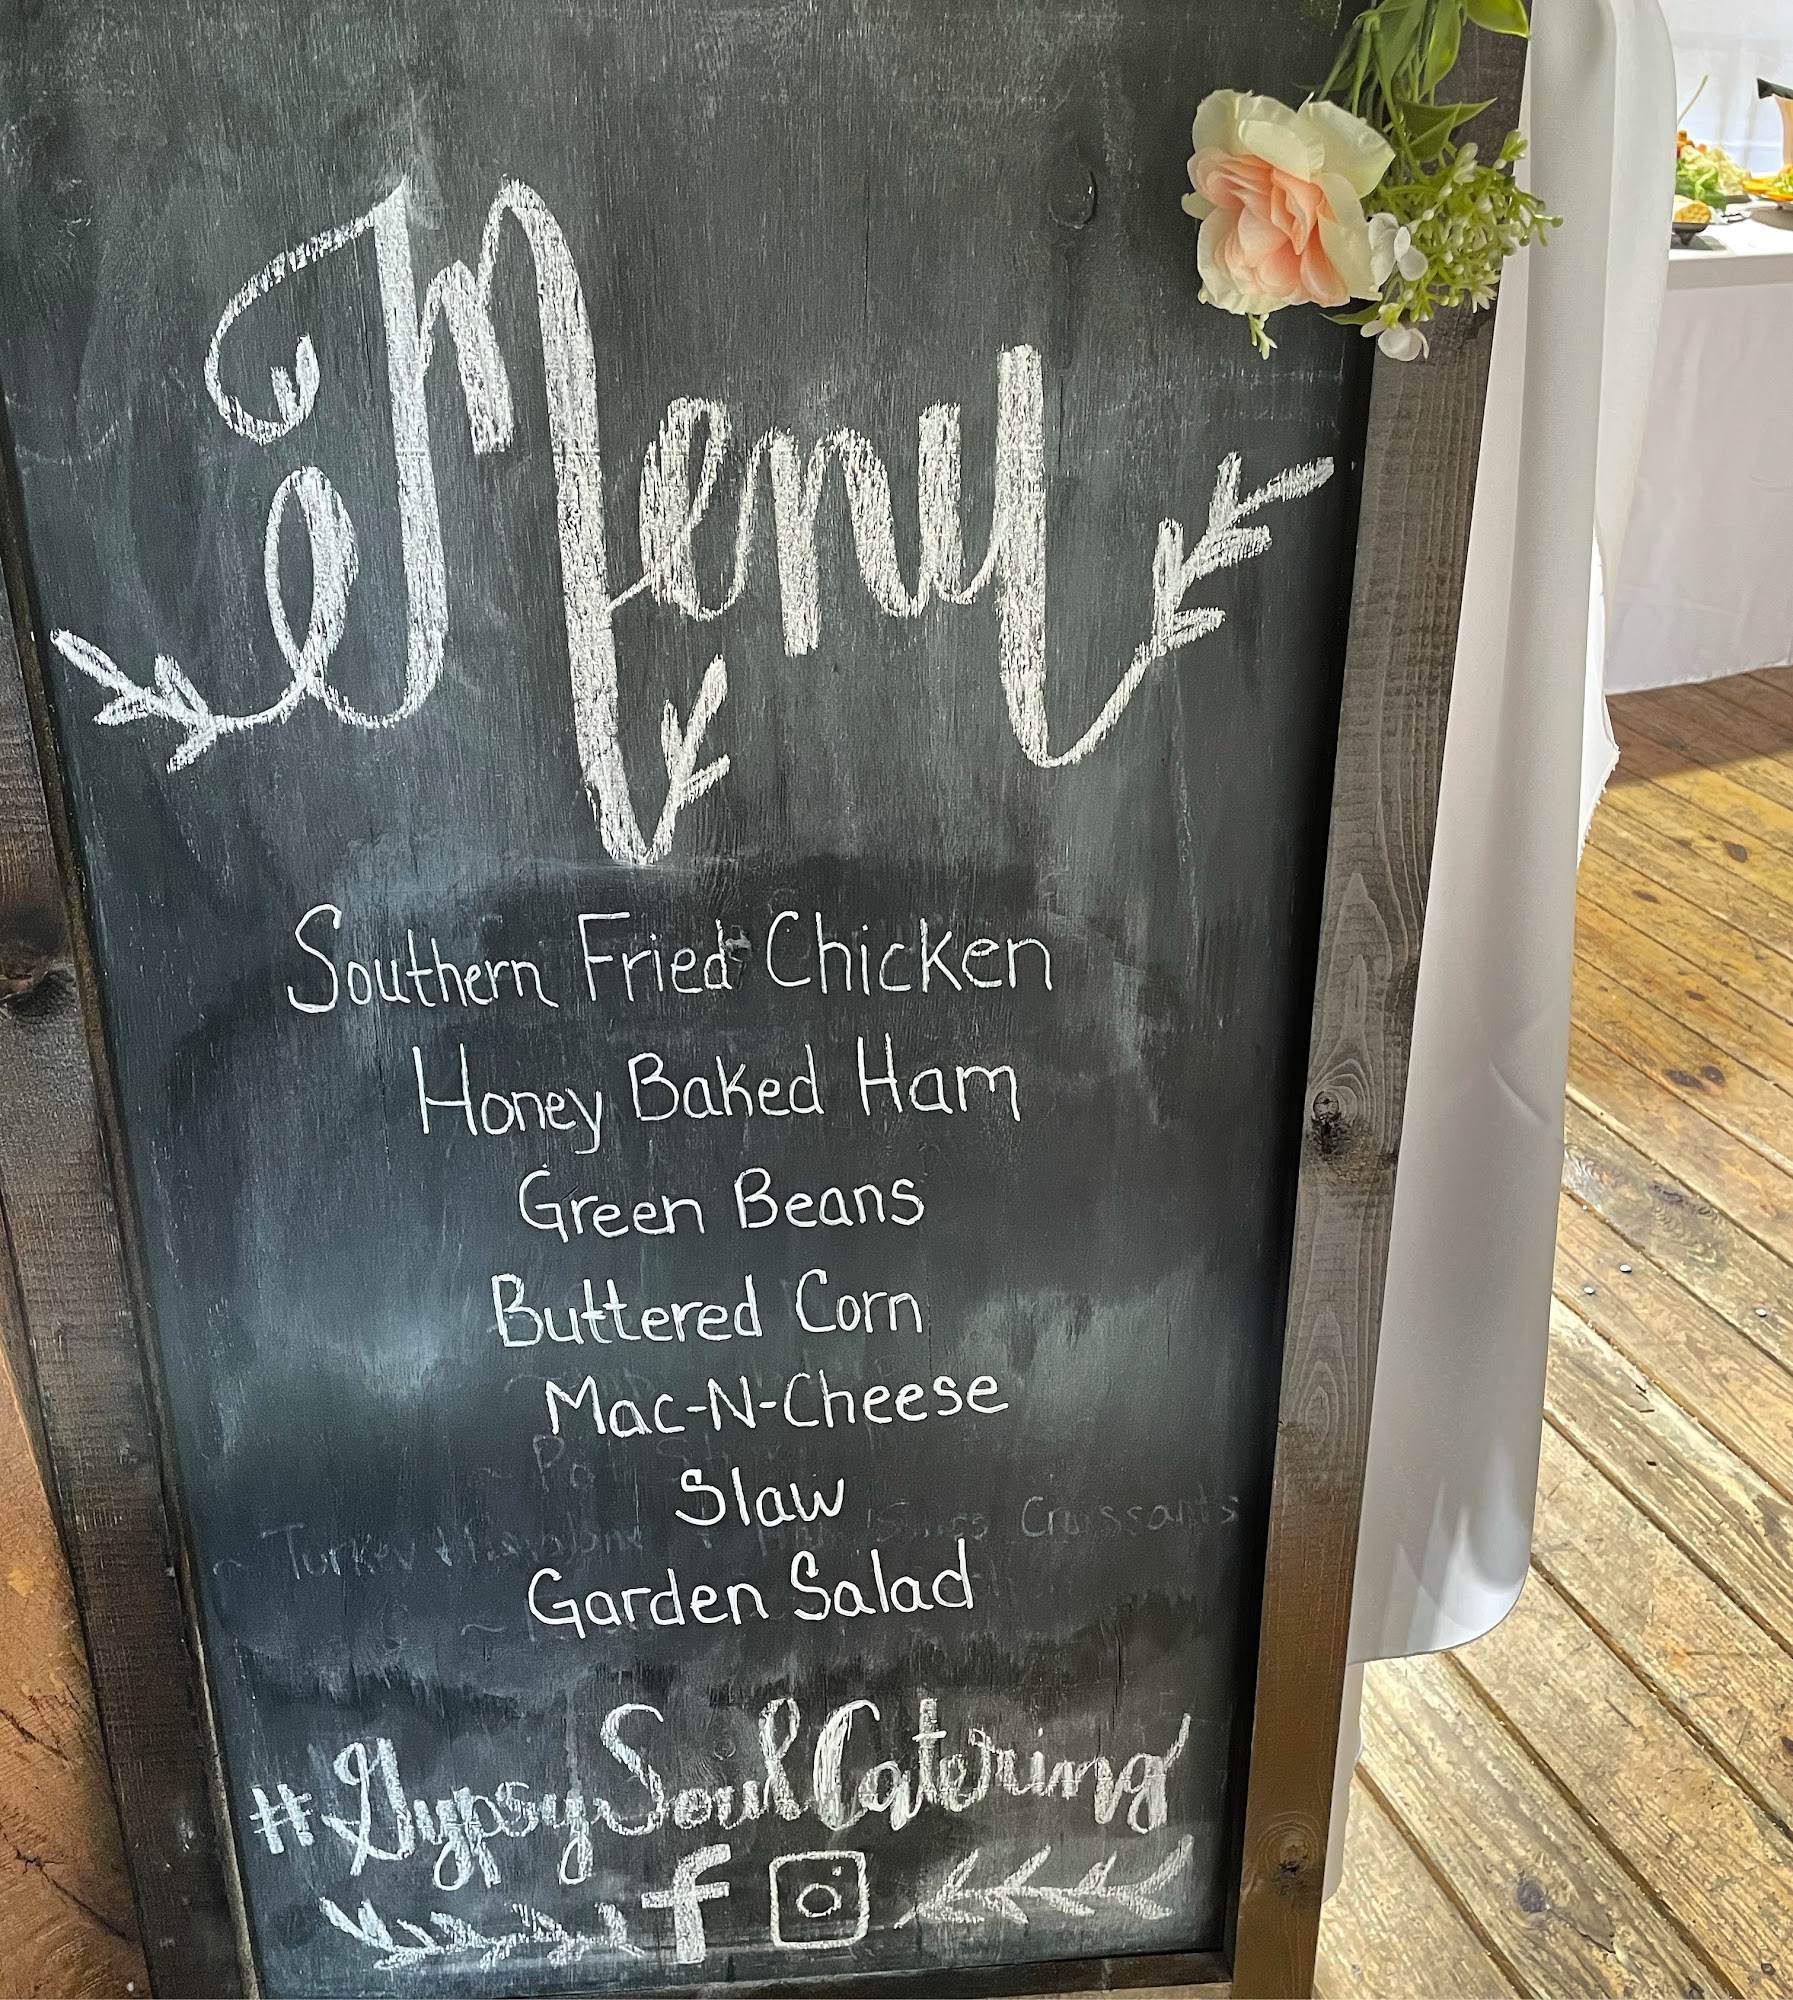 Menu
Southern Fried Chicken
Honey Baked Ham
Green Beans
Buttered Corn
Mac-N-Cheese
Slaw
~ Turkey Swiss Croissants
Garden Salad
#GypsySoulCatering
f